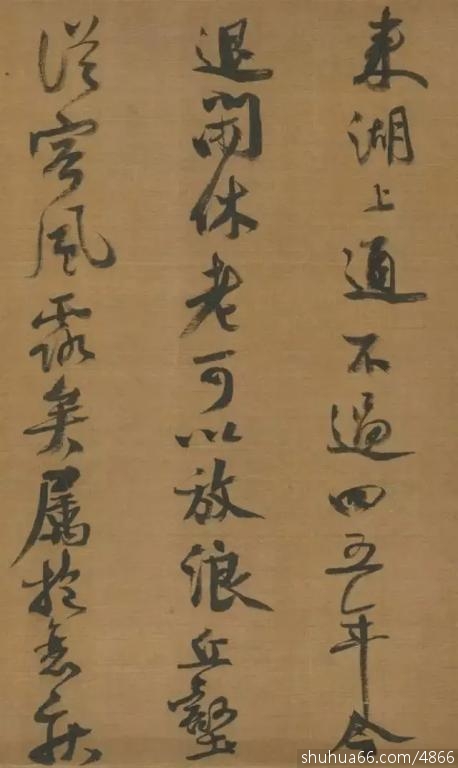 東湖上通不過四五年合
退閒休老可以放浪丘壑
從容風露矣屬於
shuhua66.com/4866